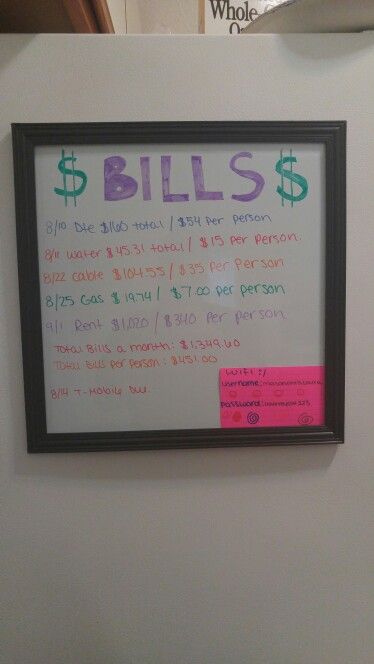 Whole
$ BILLS $
8/10 Dte $160 total / $54 per person
8/11 water $45.31 total / $15 per person.
8/22 cable $104.55 / $35 per person
8/25 Gas $19.74 / $7.00 per person
9/1 Rent $1,020 / $340 per person
Total Bills a month: $1,349.60
Total Bills per person: $451.00
8/14 T-Mobile Due.
WiFi :/
username:
password: